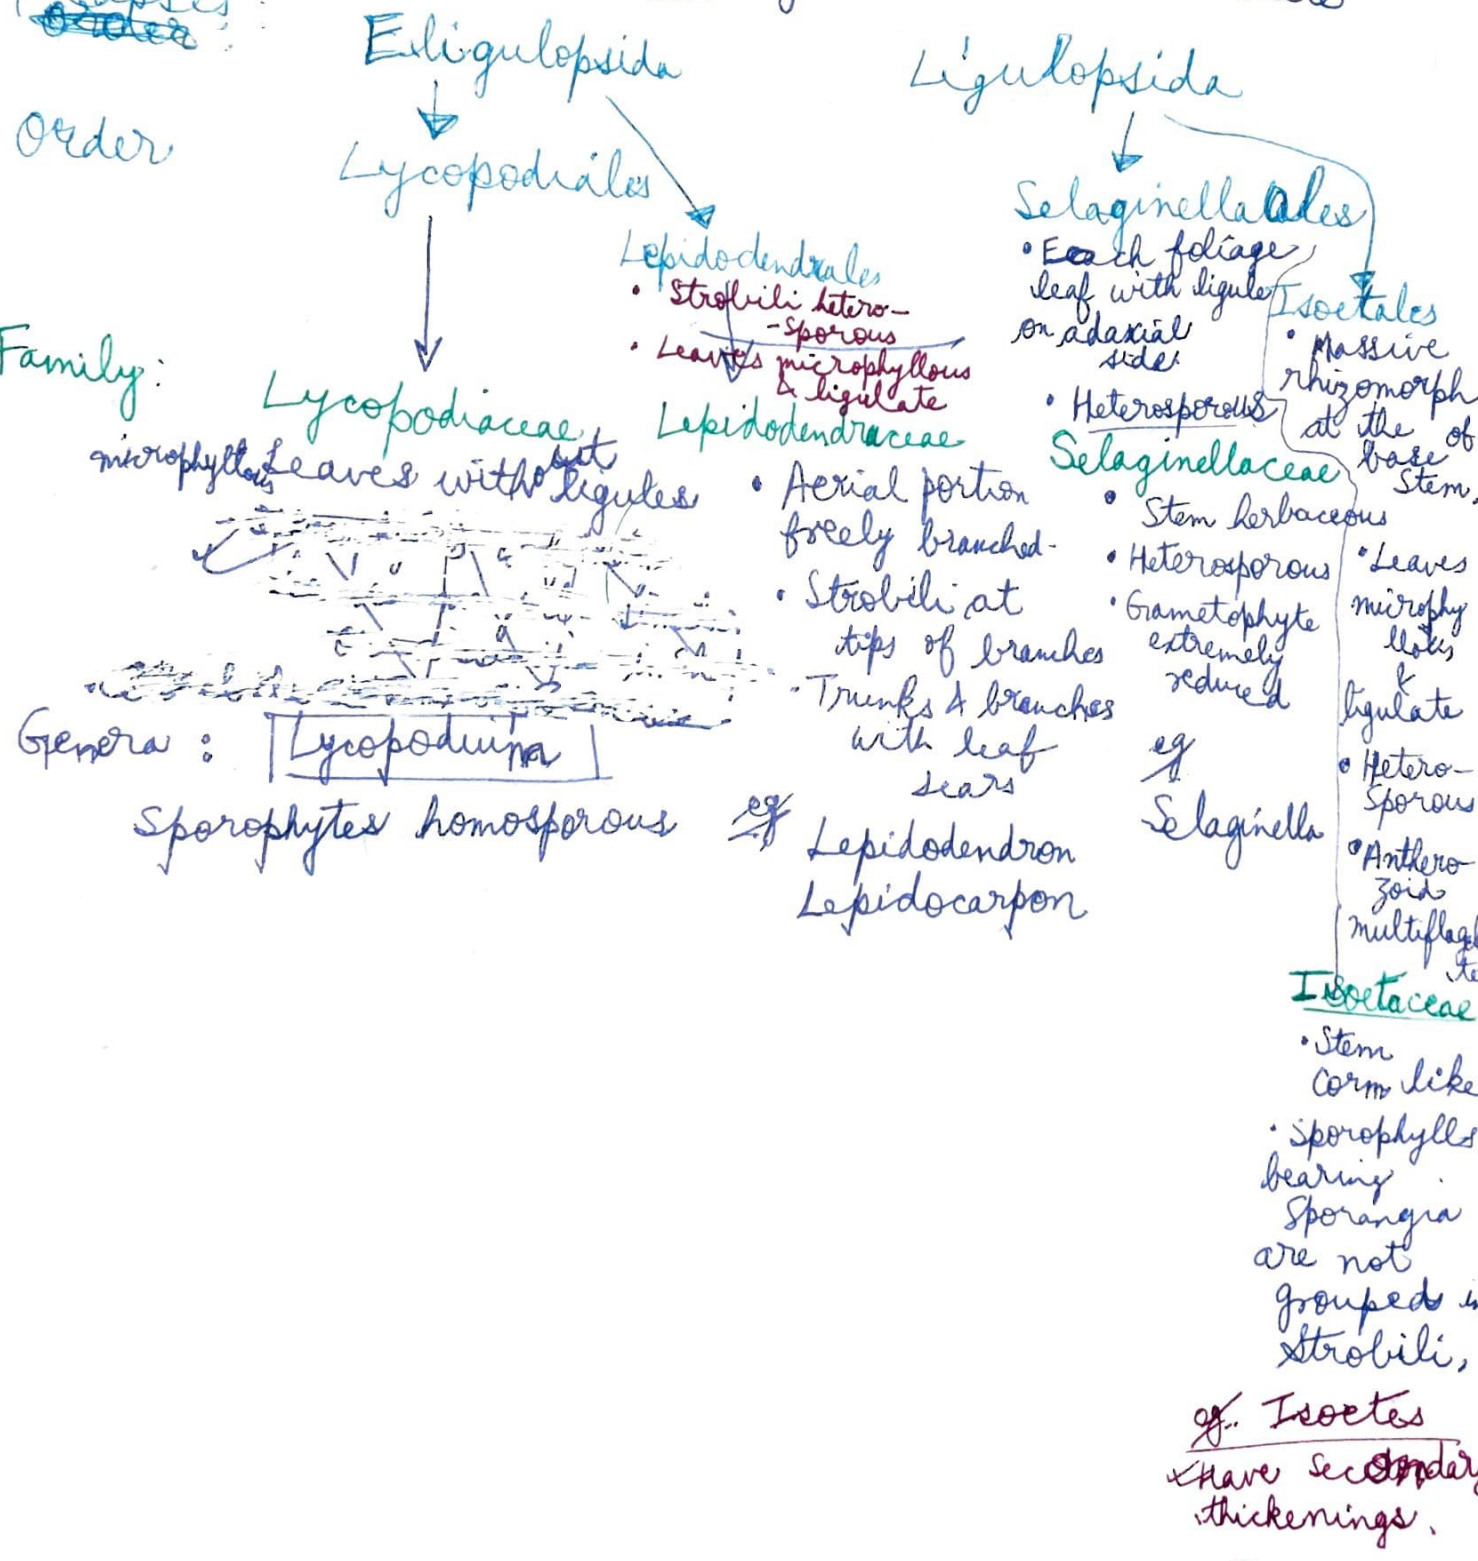 Eligulopsida
Ligulopsida
Order
Lycopodiales
Lepidodendrales
• Strobili hetero-
-sporous
• Leaves microphyllous
& ligulate
Selaginellaales
• Each foliage
leaf with ligule
on adaxial
side.
• Heterosporous
Isoetales
• Massive
rhizomorph
at the base of
stem.
• Leaves
microphy
llous
&
ligulate
• Hetero-
sporous
• Anthero-
zoid
Family:
Lycopodiaceae
microphyllous Leaves without ligules
Lepidodendraceae
• Aerial portion
freely branched.
• Strobili at
tips of branches
• Trunks & branches
with leaf
scars
eg
Lepidodendron
Lepidocarpon
Selaginellaceae
• Stem herbaceous
• Heterosporous
• Gametophyte
extremely
reduced
eg
Selaginella
Genera :
Lycopodium
Sporophytes homosporous
Isoetaceae
• Stem
corm like
• Sporophylls
bearing
sporangia
are not
grouped
strobili,
eg. Isoetes
Have secondary
thickenings.